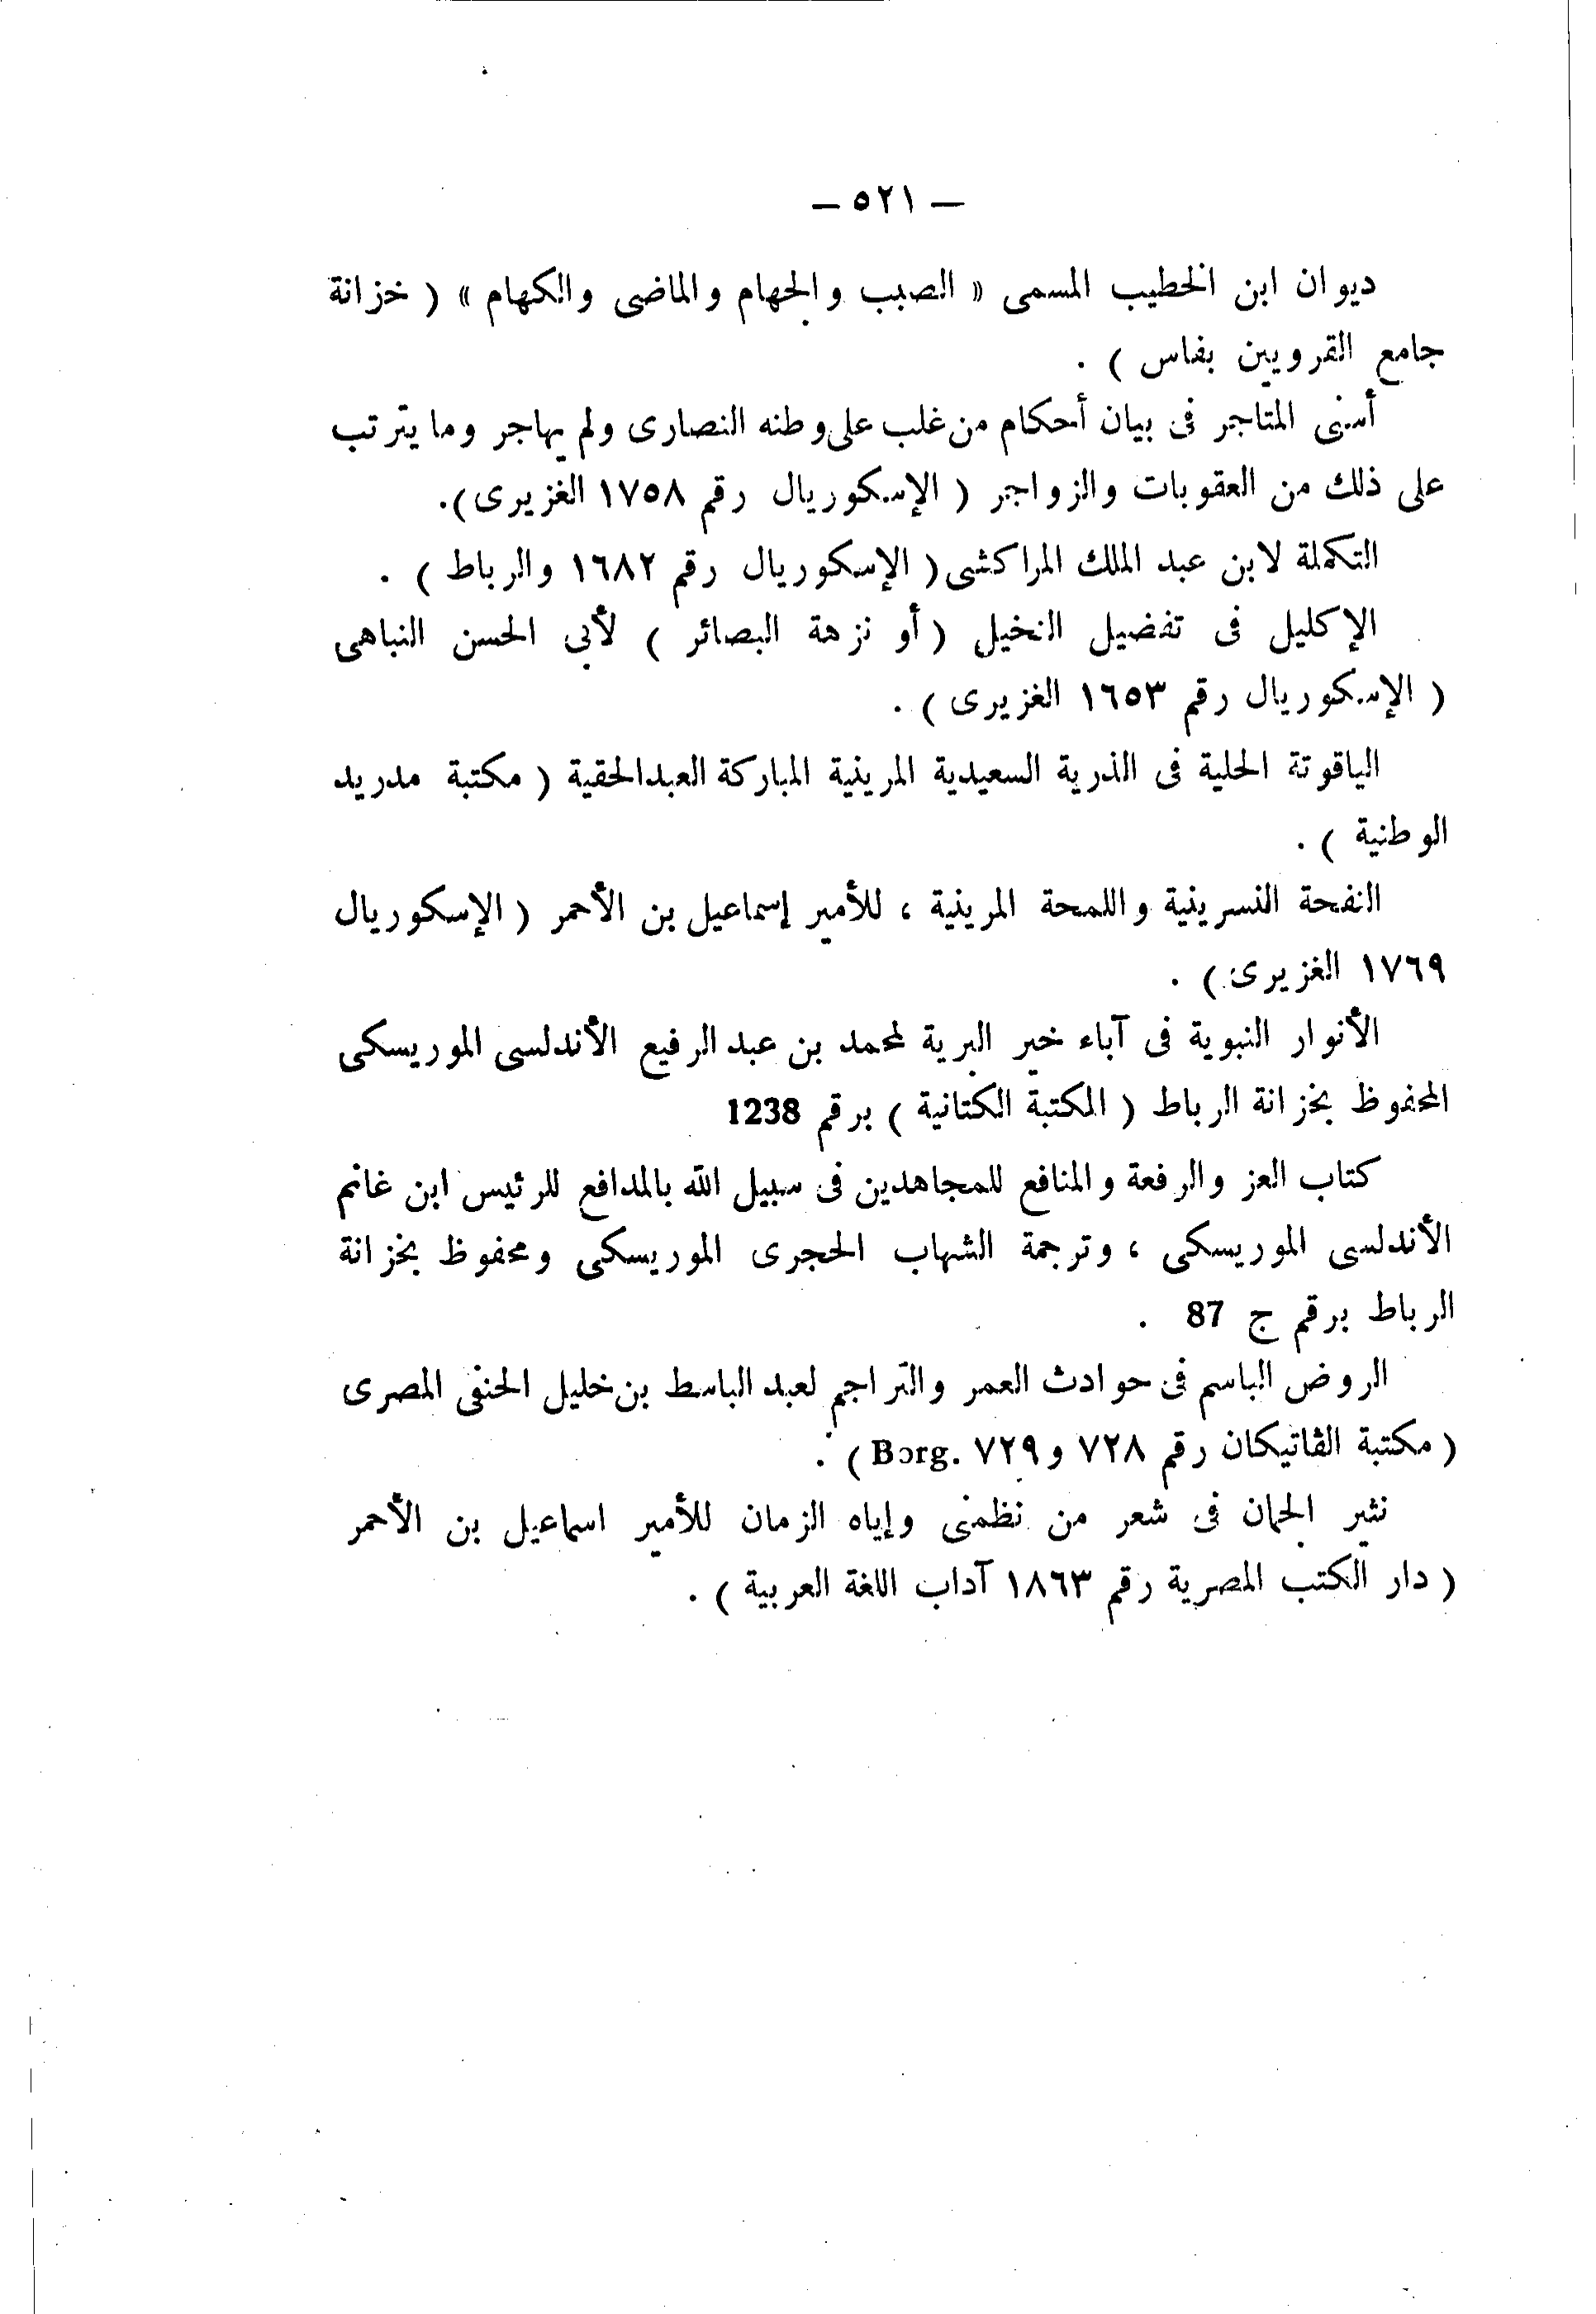 — ٥٢١ —
ديوان ابن الخطيب المسمى « الصيب والجهام والماضى والكهام » ( خزانة
جامع القرويين بفاس ) .
أسنى المتاجر فى بيان أحكام من غلب على وطنه النصارى ولم يهاجر وما يترتب
على ذلك من العقوبات والزواجر ( الإسكوريال رقم ١٧٥٨ الغزيرى ).
التكملة لابن عبد الملك المراكشى ( الإسكوريال رقم ١٦٨٢ والرباط ) .
الإكليل فى تفضيل النخيل ( أو نزهة البصائر ) لأبى الحسن النباهى
( الإسكوريال رقم ١٦٥٣ الغزيرى ) .
الياقوتة الحلية فى الذرية السعيدية المرينية المباركة العبدالحقية ( مكتبة مدريد
الوطنية ) .
النفحة النسرينية واللمحة المرينية ، للأمير إسماعيل بن الأحمر ( الإسكوريال
١٧٦٩ الغزيرى ) .
الأنوار النبوية فى آباء خير البرية لمحمد بن عبد الرفيع الأندلسى الموريسكى
المحفوظ بخزانة الرباط ( المكتبة الكتانية ) برقم 1238
كتاب العز والرفعة والمنافع للمجاهدين فى سبيل الله بالمدافع للرئيس ابن غانم
الأندلسى الموريسكى ، وترجمة الشهاب الحجرى الموريسكى ومحفوظ بخزانة
الرباط برقم ج 87 .
الروض الباسم فى حوادث العمر والتراجم لعبد الباسط بن خليل الحنفى المصرى
( مكتبة الڤاتيكان رقم ٧٢٨ و ٧٢٩ Borg. ) .
نثير الجمان فى شعر من نظمنى وإياه الزمان للأمير اسماعيل بن الأحمر
( دار الكتب المصرية رقم ١٨٦٣ آداب اللغة العربية ) .